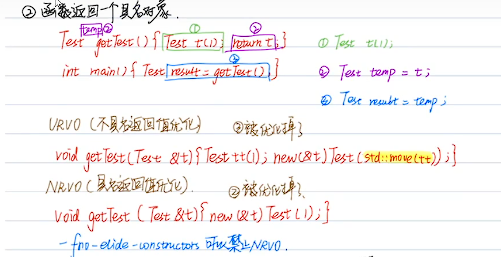 ② 函数返回一个具名对象.
temp ② ① ②
Test getTest() { Test t(1); return t; } ① Test t(1);
③
int main() { Test result = getTest() } ② Test temp = t;
③ Test result = temp;
URVO (不具名返回值优化) ③被优化掉了
void getTest(Test &t) { Test tt(1); new(&t) Test(std::move(tt)); }
NRVO (具名返回值优化) ②被优化掉了
void getTest (Test &t) { new(&t) Test(1); }
-fno-elide-constructors 可以禁止NRVO.